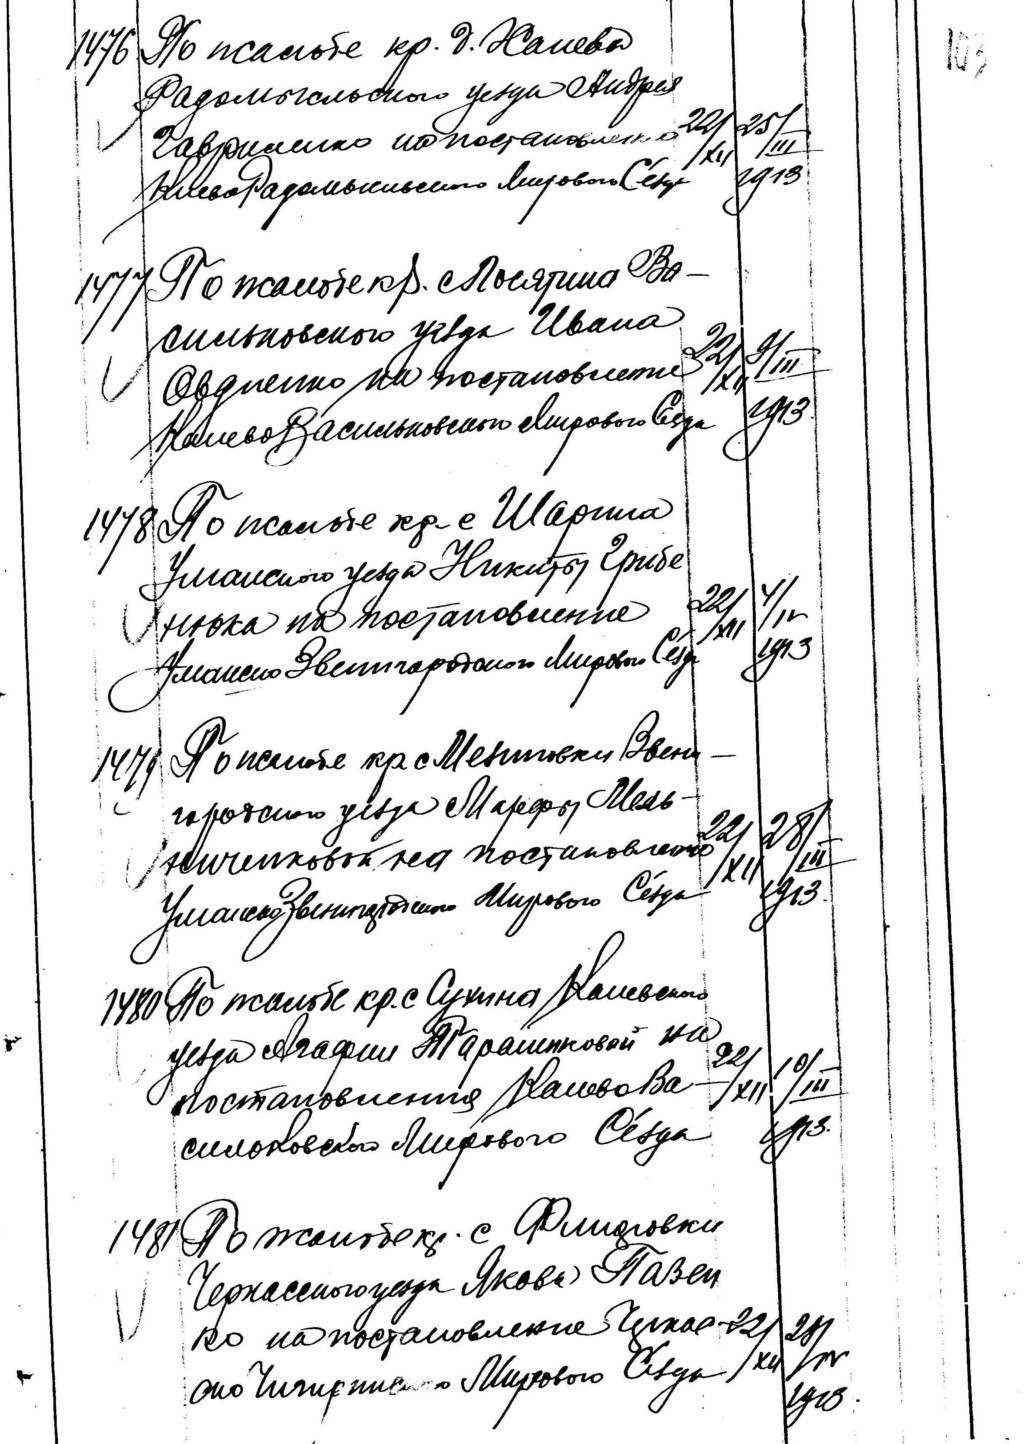 103
1476 По жалобе кр. д. Ханева
Радомысльского уезда Андрея
Гавриленко на постановление 22/XII 25/III
Киево Радомысльского Мирового Съезда 1913
1477 По жалобе кр. с Посятина Ва-
сильковского уезда Ивана
Овдиенко на постановление 22/XII 9/III
Киево Васильковского Мирового Съезда 1913.
1478 По жалобе кр. с Шарина
Уманского уезда Никиты Грибе
нюка на постановление 22/XII 4/IV
Уманско Звенигородского Мирового Съезда 1913
1479 По жалобе кр с Звени-
городского уезда Марфы Мель-
ниченковой на постановление 22/XII 28/III
Уманско Звенигородского Мирового Съезда 1913.
1480 По жалобе кр. с Сухина Каневского
уезда Агафии Тараненковой на
постановления Киево Ва- 22/XII 10/III
сильковского Мирового Съезда 1913.
1481 По жалобе кр. с
Черкасского уезда Якова Пазен
ко на постановление Черкас- 22/XII 28/IV
ско Чигиринского Мирового Съезда 1913.